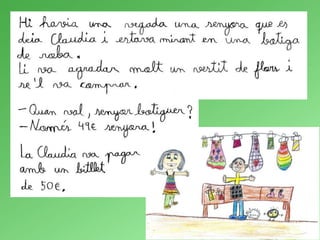 Hi havia una vegada una senyora que es
deia Claudia i estava mirant en una botiga
de roba.
Li va agradar molt un vestit de flors i
se'l va comprar.
-Quan val, senyor botiguer?
-Només 49€ senyora!
La Claudia va pagar
amb un bitllet
de 50€.